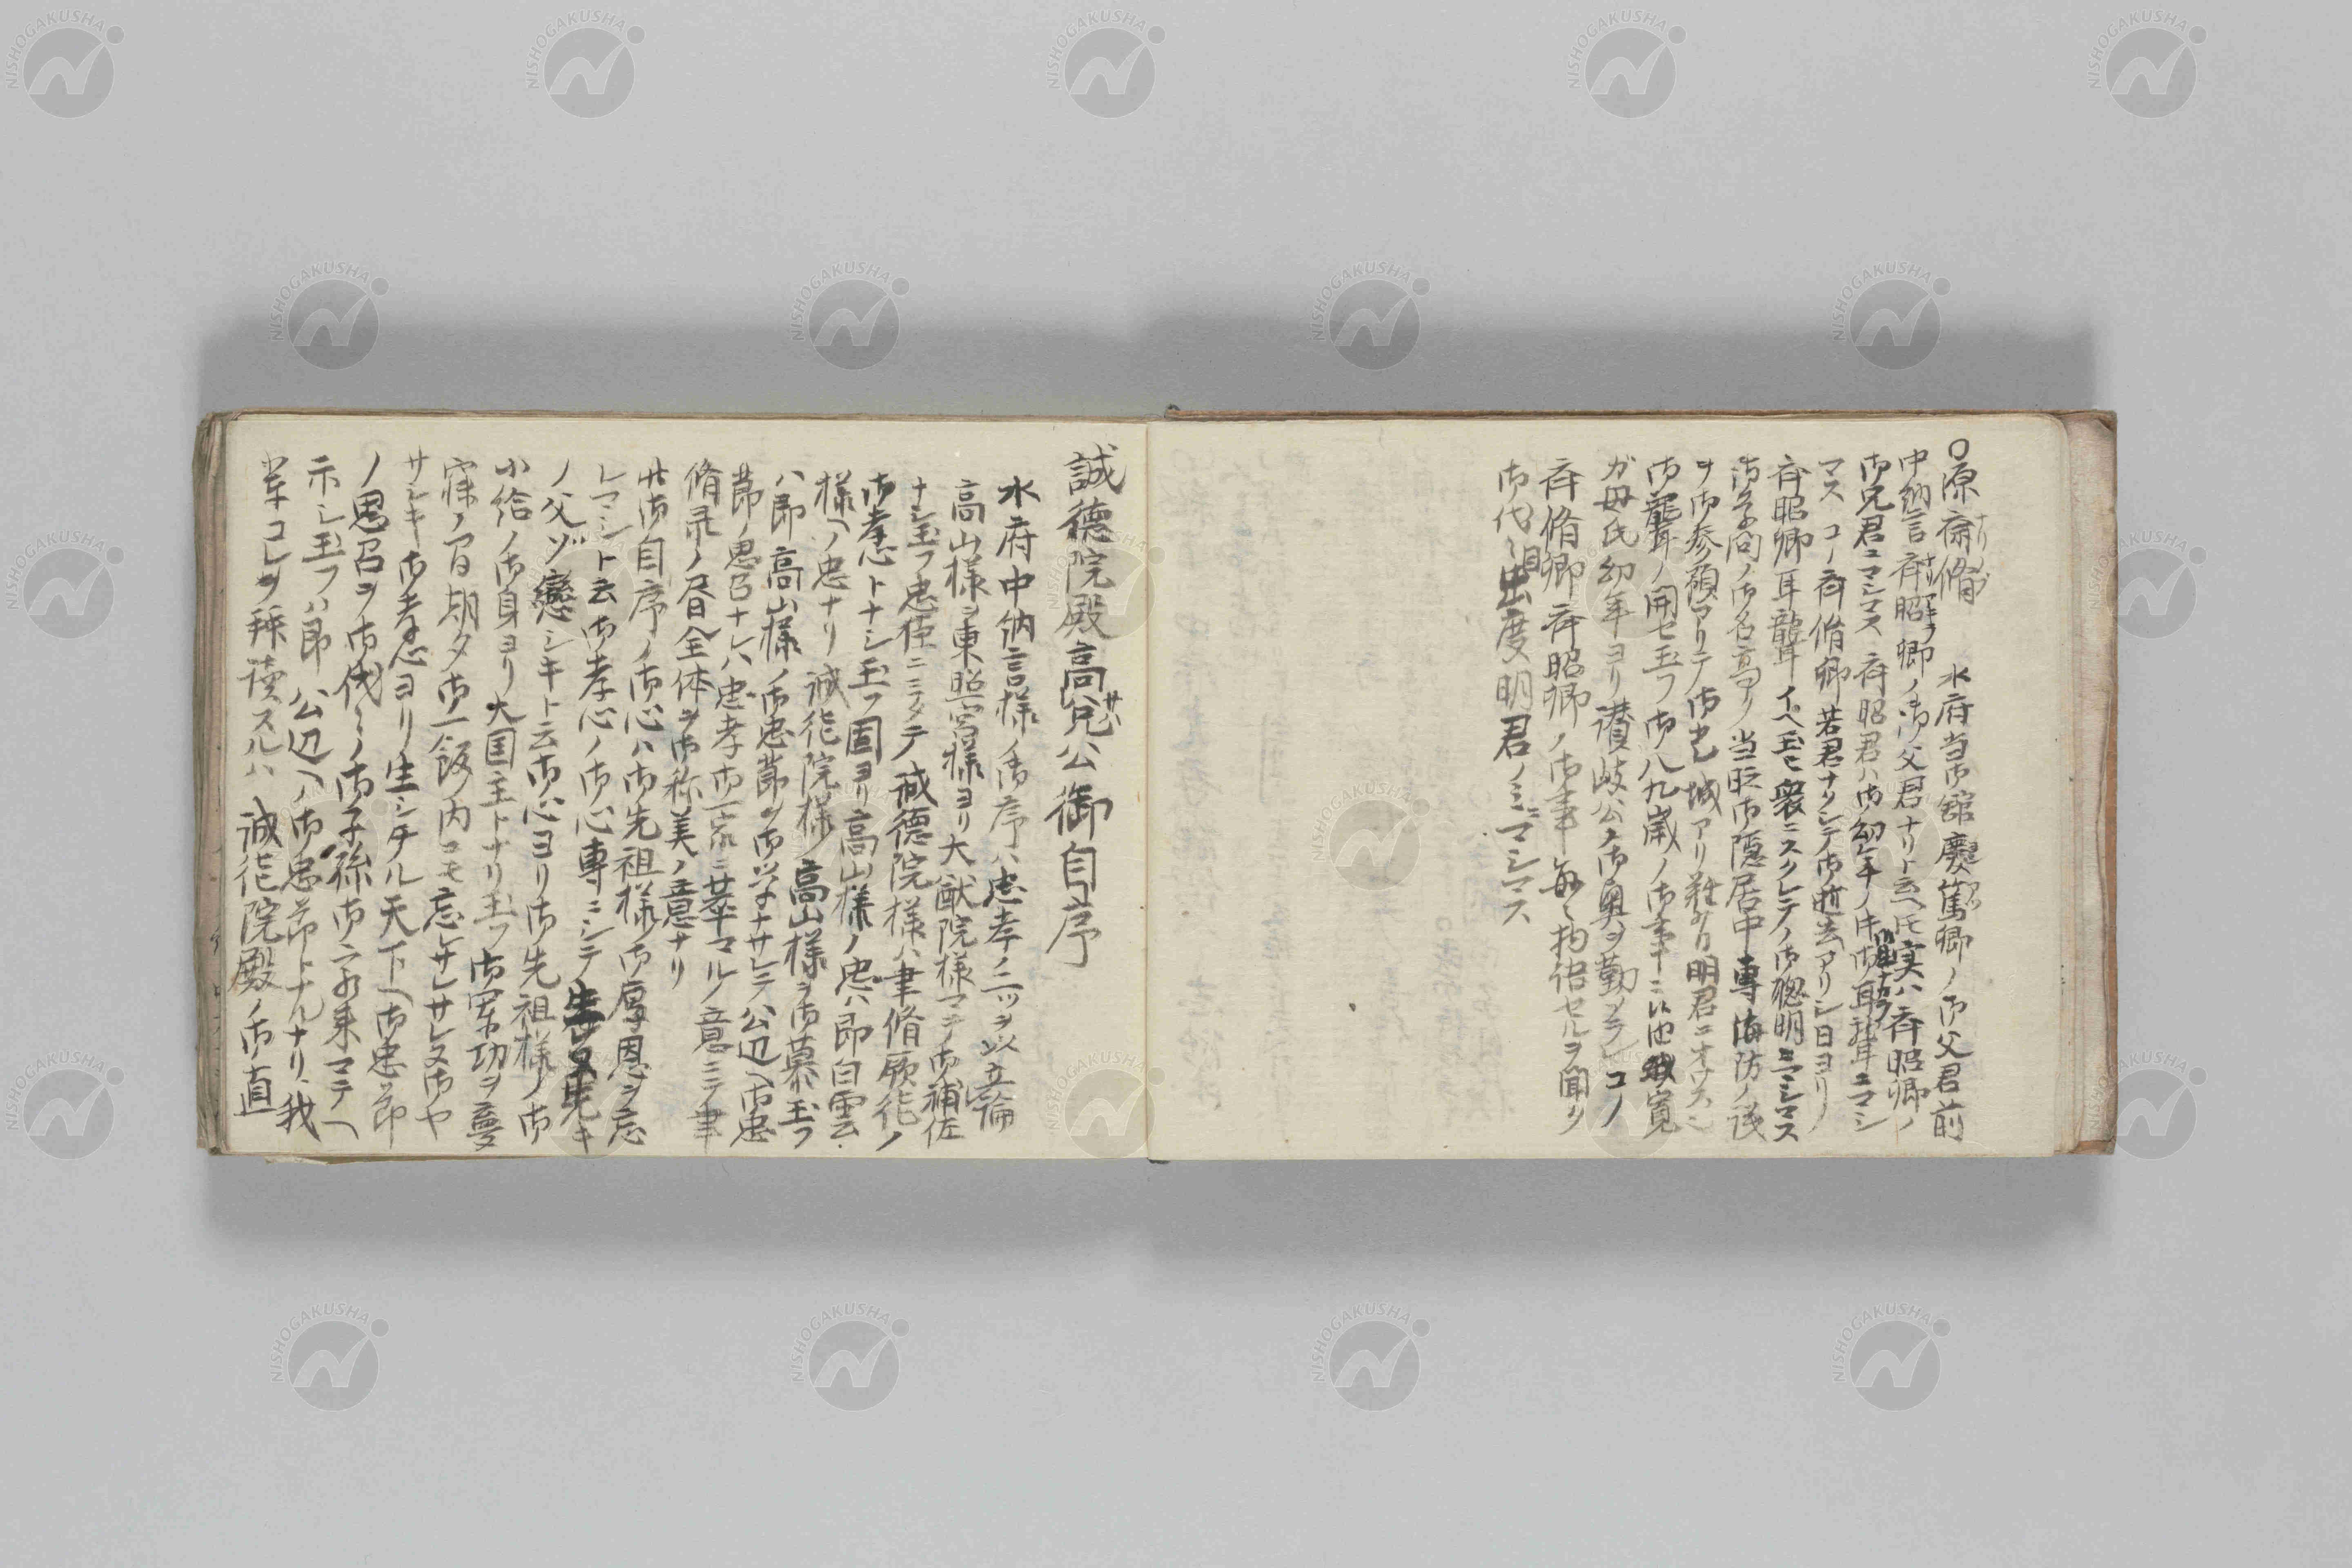 ○原斎脩 水府当御舘慶篤卿ノ御父君前
中納言斉昭卿ノ御父君ナリト云ヘ𪜈実ハ斉昭卿ノ
御兄君ニマシマス 斉昭君ハ御幼年ノ
マス コノ斉脩卿若君ナクシテ御逝去アリシ日ヨリ
斉昭卿耳聾イヘ玉ヒ衆ニスクレテノ御聡明ニマシマス
御学問ノ御名高アリ当時御隠居中専海防ノ議
ヲ御参預アリテ御登城アリ難有明君ニオワス
御聾耳ノ開セ玉フ御八九歳ノ御事ニ
ガ母氏幼年ヨリ讃岐公ノ御奥ヲ勤メラレコノ
斉脩卿斉昭卿ノ御事毎々物語セルヲ聞リ
御代々目出度明君ノミニマシマス
誠德院殿高兌公御自序
水府中納言様ノ御序ハ忠孝ノ二ツヲ以立論
高山様ヲ東照宮様ヨリ大猷院様マテ御補佐
ナシ玉フ忠臣ニミタテ誠德院様ハ聿脩厥德ノ
御孝心トナシ玉フ固ヨリ高山様ノ忠ハ即白雲
様ヘノ忠ナリ 誠德院様高山様ヲ御慕玉フ
ハ即高山様ノ御忠節ヲ御学ナサレテ公辺ヘ御忠
節ノ思召ナレハ忠孝御一家ニ萃マルノ意ニテ聿
脩録ノ全体ヲ御称美ノ意ナリ
此御自序ノ御心ハ御先祖様御厚恩ヲ忘
レマシト云御孝心ノ御心専ニシテ
ノ父ゾ戀シキト云御心ヨリ御先祖様ノ御
小給ノ御身ヨリ大国主トナリ玉フ御軍功ヲ夢
寐ノ間朝夕御一飯内ニモ忘レサセサレヌ御ヤ
サシキ御孝心ヨリ生シタル天下ヘ御忠節
ノ思召ヲ御代々ノ御子孫御六ヶ末マテヘ
示シ玉フハ即公辺ヘノ御忠節トナルナリ我
輩コレヲ拝読スルハ誠德院殿ノ御直
NISHOGAKUSHA